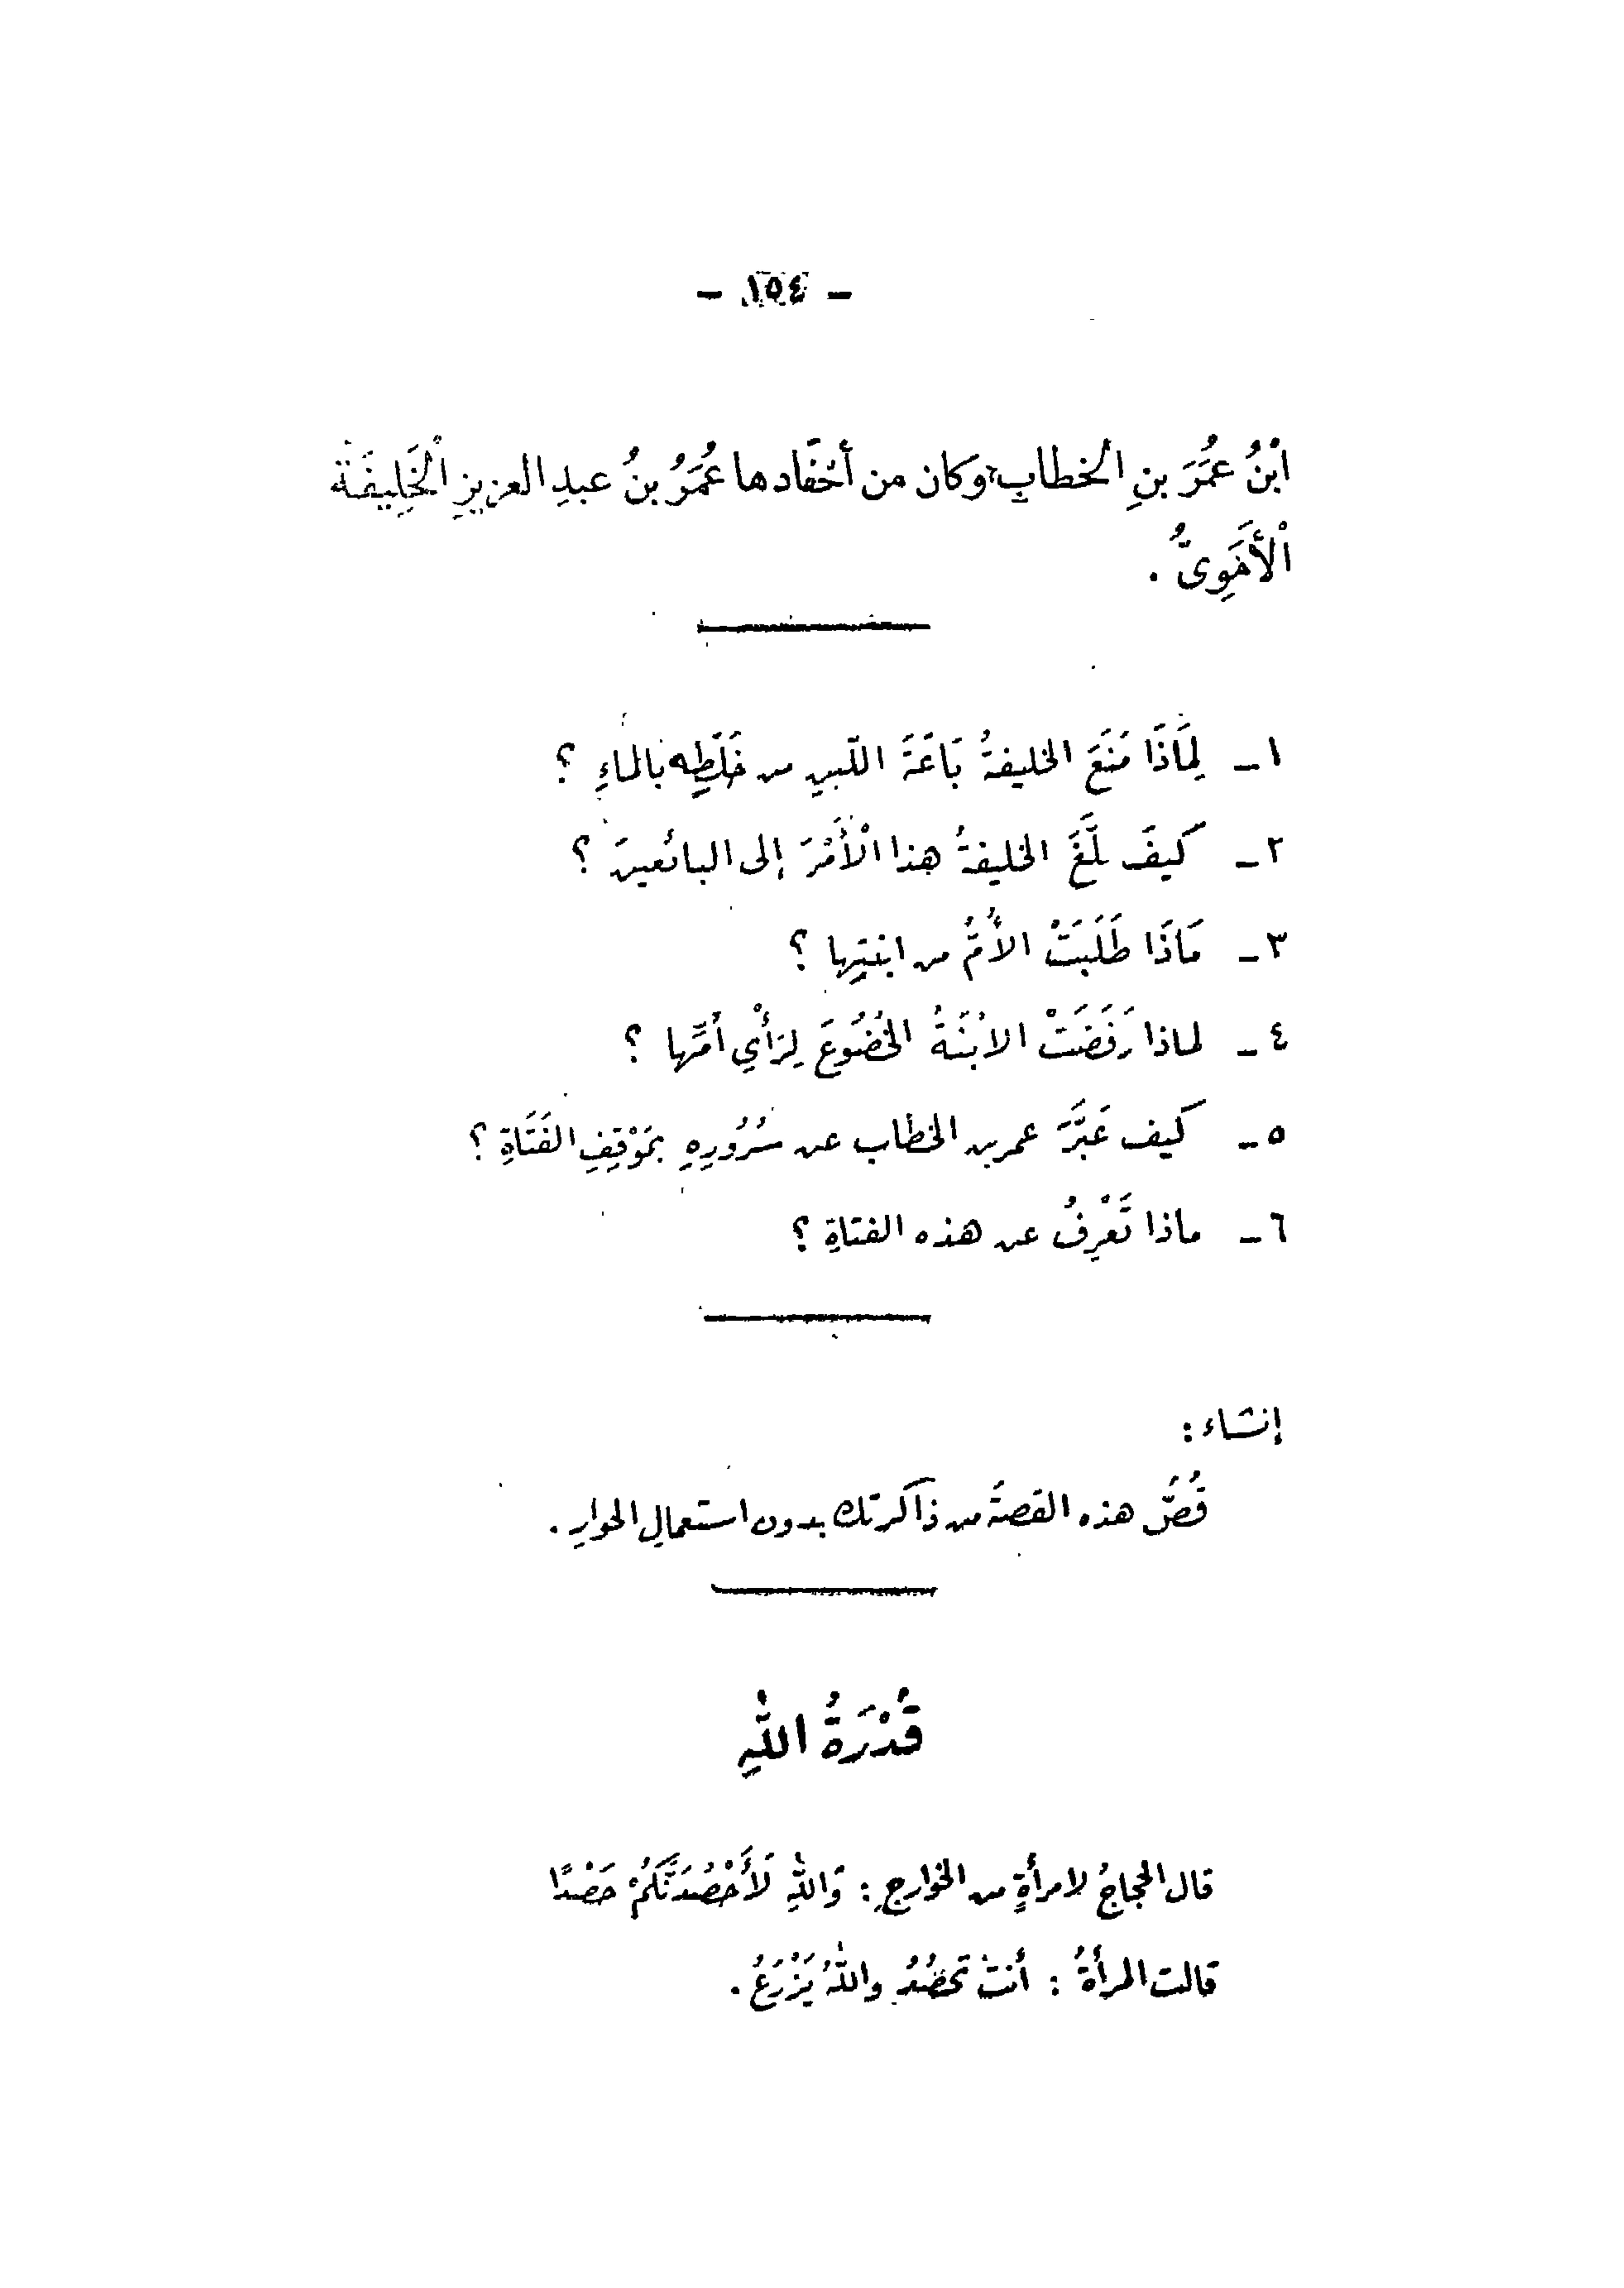 - ١٥٤ -
ابْنُ عُمَرَ بنِ الخطابِ، وكان من أحْفَادها عُمَرُ بنُ عبدِ العزيزِ الْخَلِيفَة
الْأمَوِىُّ .
١ـ لِمَاذَا مَنَعَ الخليفةُ بَاعَةَ اللّبنِ من خَلْطِه بالماءِ ؟
٢ـ كيفَ بلَّغَ الخليفةُ هذا الْأَمْرَ إلى البائعينَ ؟
٣ـ مَاذَا طَلَبَتْ الأُمُّ من ابنتِها ؟
٤ـ لماذا رَفَضَتْ الابْنَةُ الخُضُوعَ لِرَأْيِ أمِّها ؟
٥ـ كيف عَبَّرَ عمر بن الخطاب عن سُرُورِهِ بمَوْقِفِ الفَتَاةِ ؟
٦ـ ماذا تَعْرِفُ عن هذه الفتاةِ ؟
إنشاء :
قُصَّ هذه القصةَ من ذاكرتك بدون استعمالِ الحوارِ .
قُدْرَةُ اللّٰهِ
قال الحجاجُ لامرأةٍ من الخوارجِ : وَاللّٰهِ لَأَحْصُدَنَّكُمْ حَصْدًا
قالت المرأةُ : أنتَ تحصُدُ واللّٰهُ يَزْرَعُ .